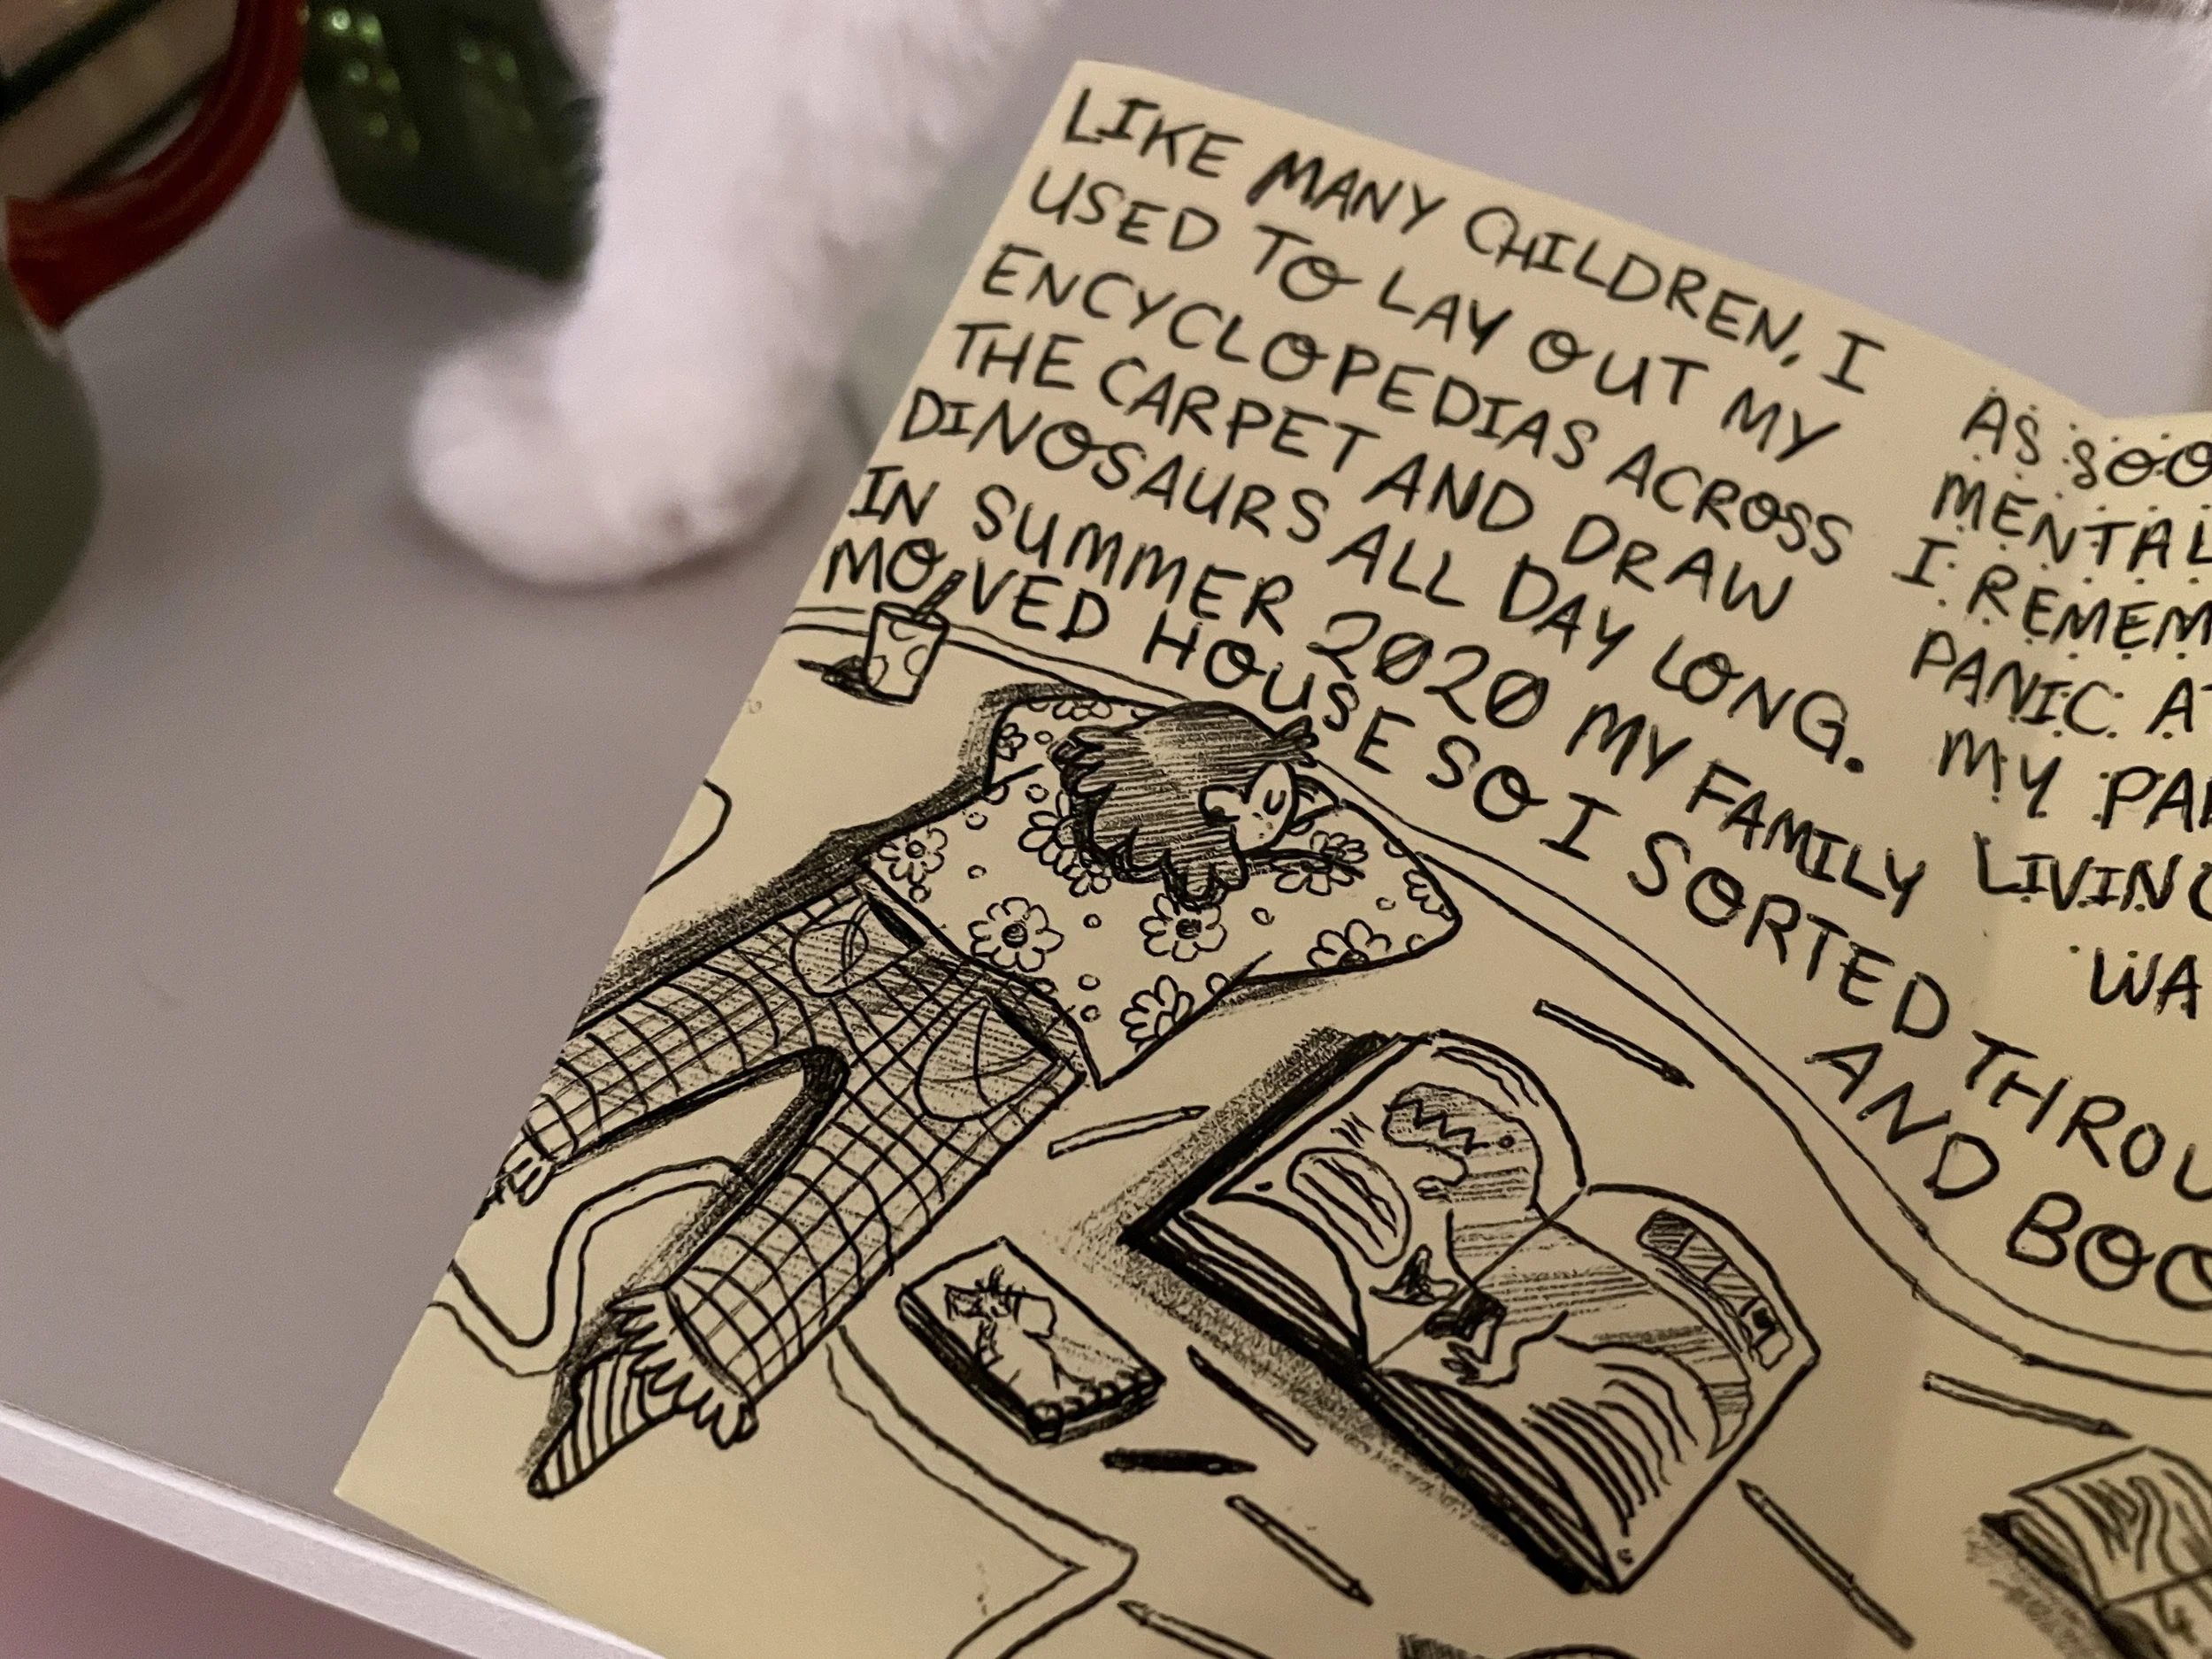 LIKE MANY CHILDREN, I
USED TO LAY OUT MY
ENCYCLOPEDIAS ACROSS
THE CARPET AND DRAW
DINOSAURS ALL DAY LONG.
IN SUMMER 2020 MY FAMILY
MOVED HOUSE SO I SORTED THROU
AND BOO
AS SOO
MENTAL
I REMEM
PANIC AT
MY PA
LIVING
WA